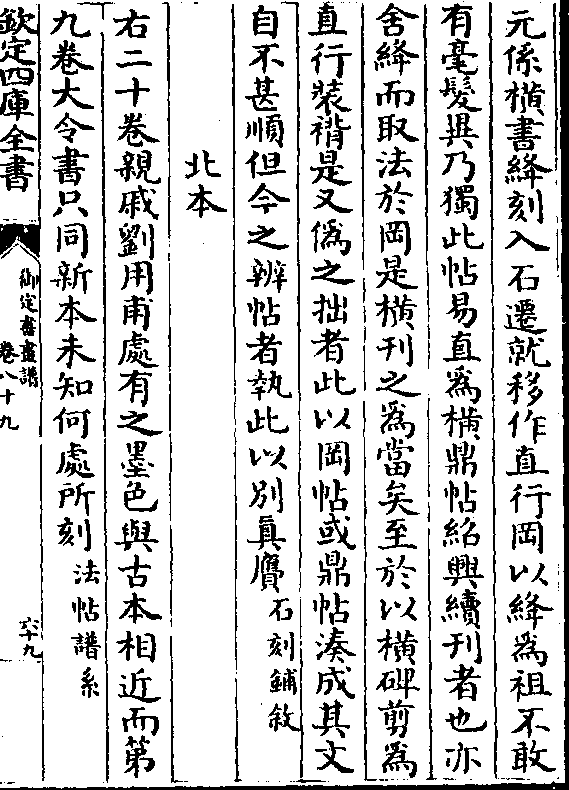 元係橫書絳刻入石遷就移作直行岡以絳爲祖不敢
有毫髮異乃獨此帖易直爲橫鼎帖紹興續刊者也亦
舍絳而取法於岡是橫刊之爲當矣至於以橫碑剪爲
直行裝褙是又僞之拙者此以岡帖或鼎帖湊成其文
自不甚順但今之辨帖者執此以別真贋石刻鋪敘
北本
右二十卷親戚劉用甫處有之墨色與古本相近而第
九卷大令書只同新本未知何處所刻法帖譜系
欽定四庫全書
御定書畫譜
卷八十九
六十九